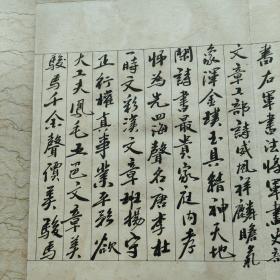 書右軍書法將軍
文章工部詩威鳳祥麟瞻氣
象渾金璞玉具精神天地
間詩書最貴家庭內孝
悌為先四海聲名唐李杜
一時文彩漢文章班楊守
正行權直事業不形欲
大工夫鳳毛五色文章美
駿馬千金聲價美駿馬